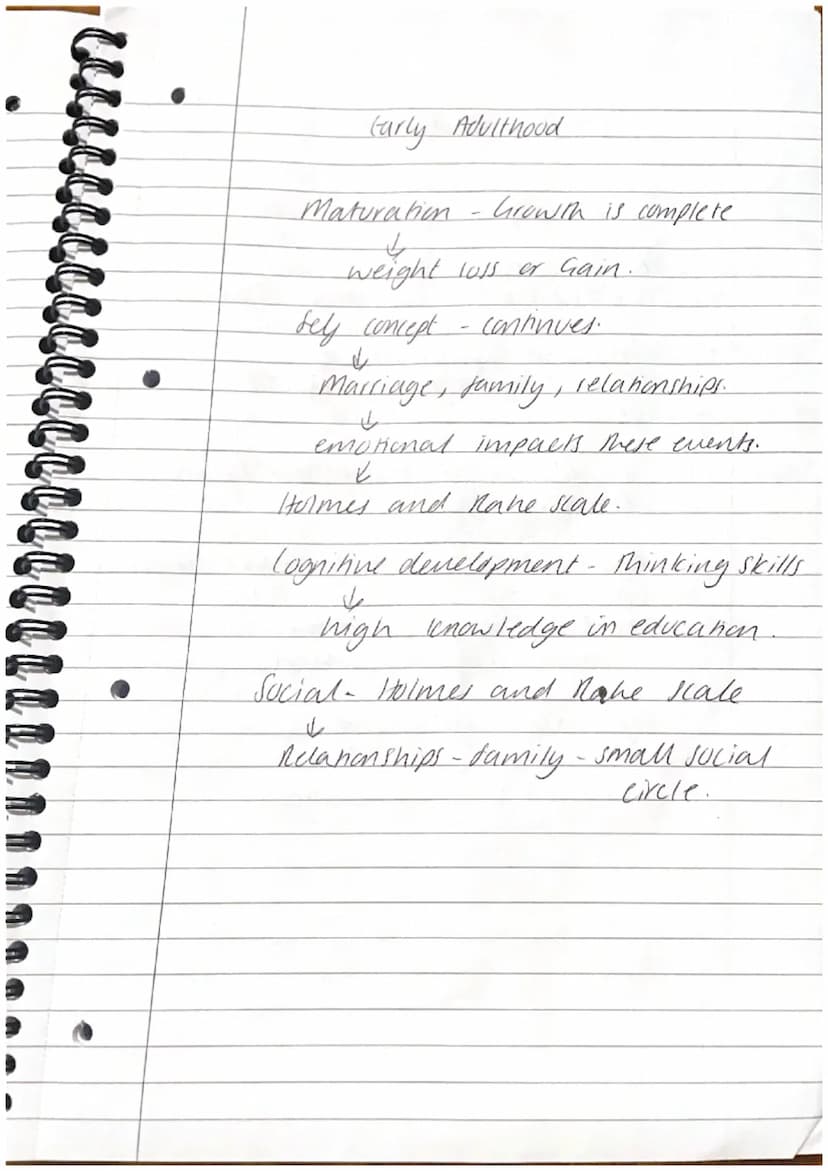 Early Adulthood
Maturation - Growth is complete
↓
weight loss or Gain.
Self concept - continues.
↓
Marriage, family, relationships.
↓
emotional impacts these events.
↓
Holmes and Rahe scale.
Cognitive development - Thinking skills
↓
high knowledge in education.
Social - Holmes and Rahe scale
↓
Relationships - family - small social
circle.